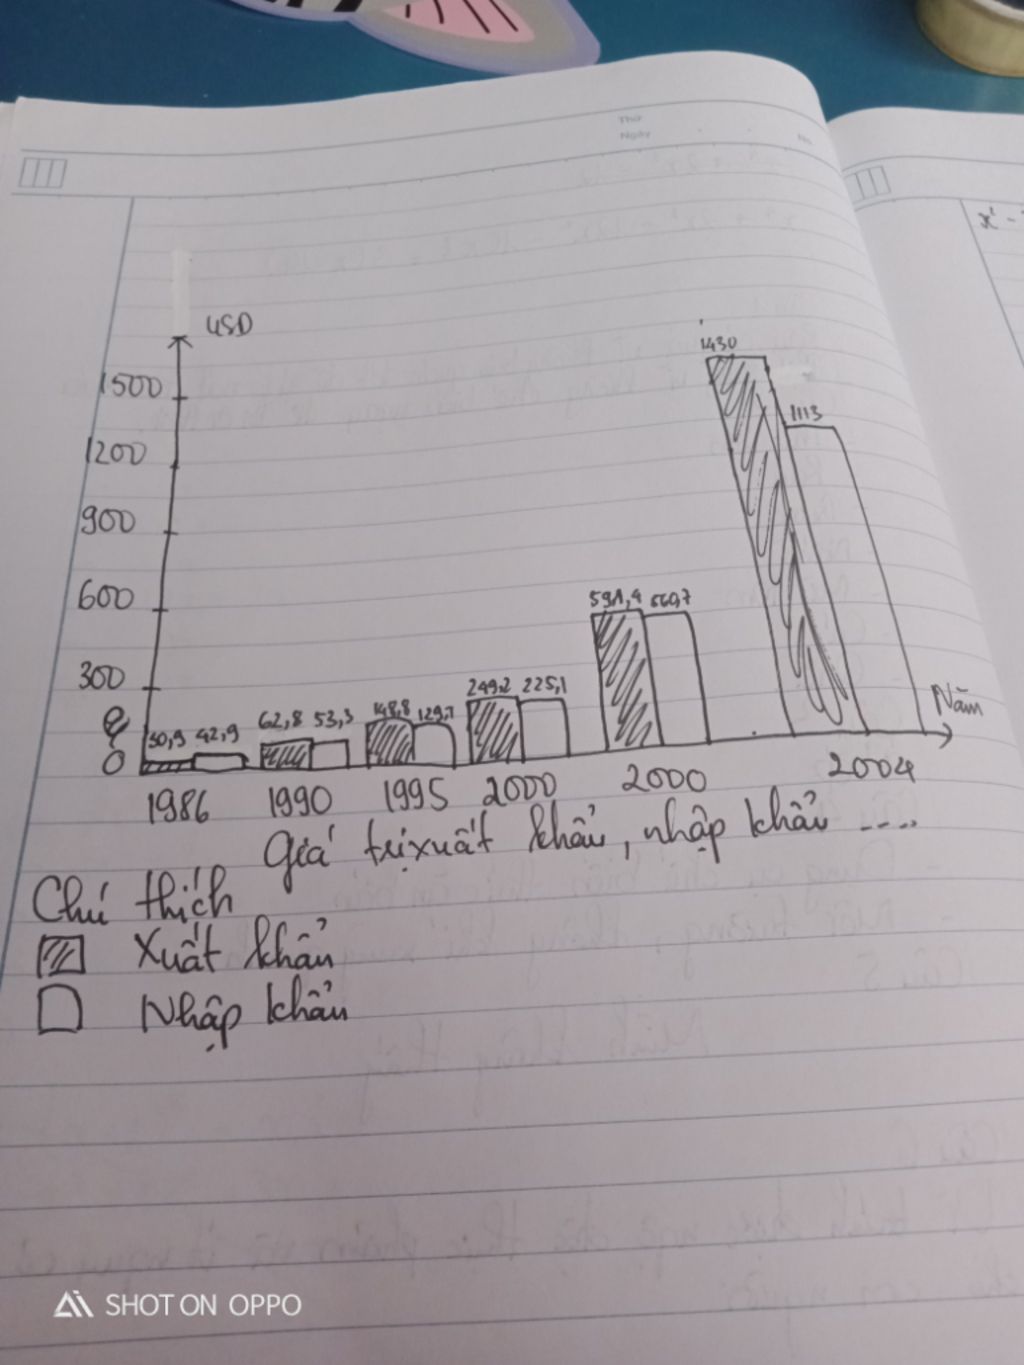 Thứ
Ngày
No.
USD
1500
1200
900
600
300
0
30,9 42,9 62,8 53,3 148,8 129,7 249,2 225,1 591,4 560,7 1430 1113
Năm
1986 1990 1995 2000 2000 2004
Giá trị xuất khẩu, nhập khẩu ....
Chú thích
Xuất khẩu
Nhập khẩu
SHOT ON OPPO